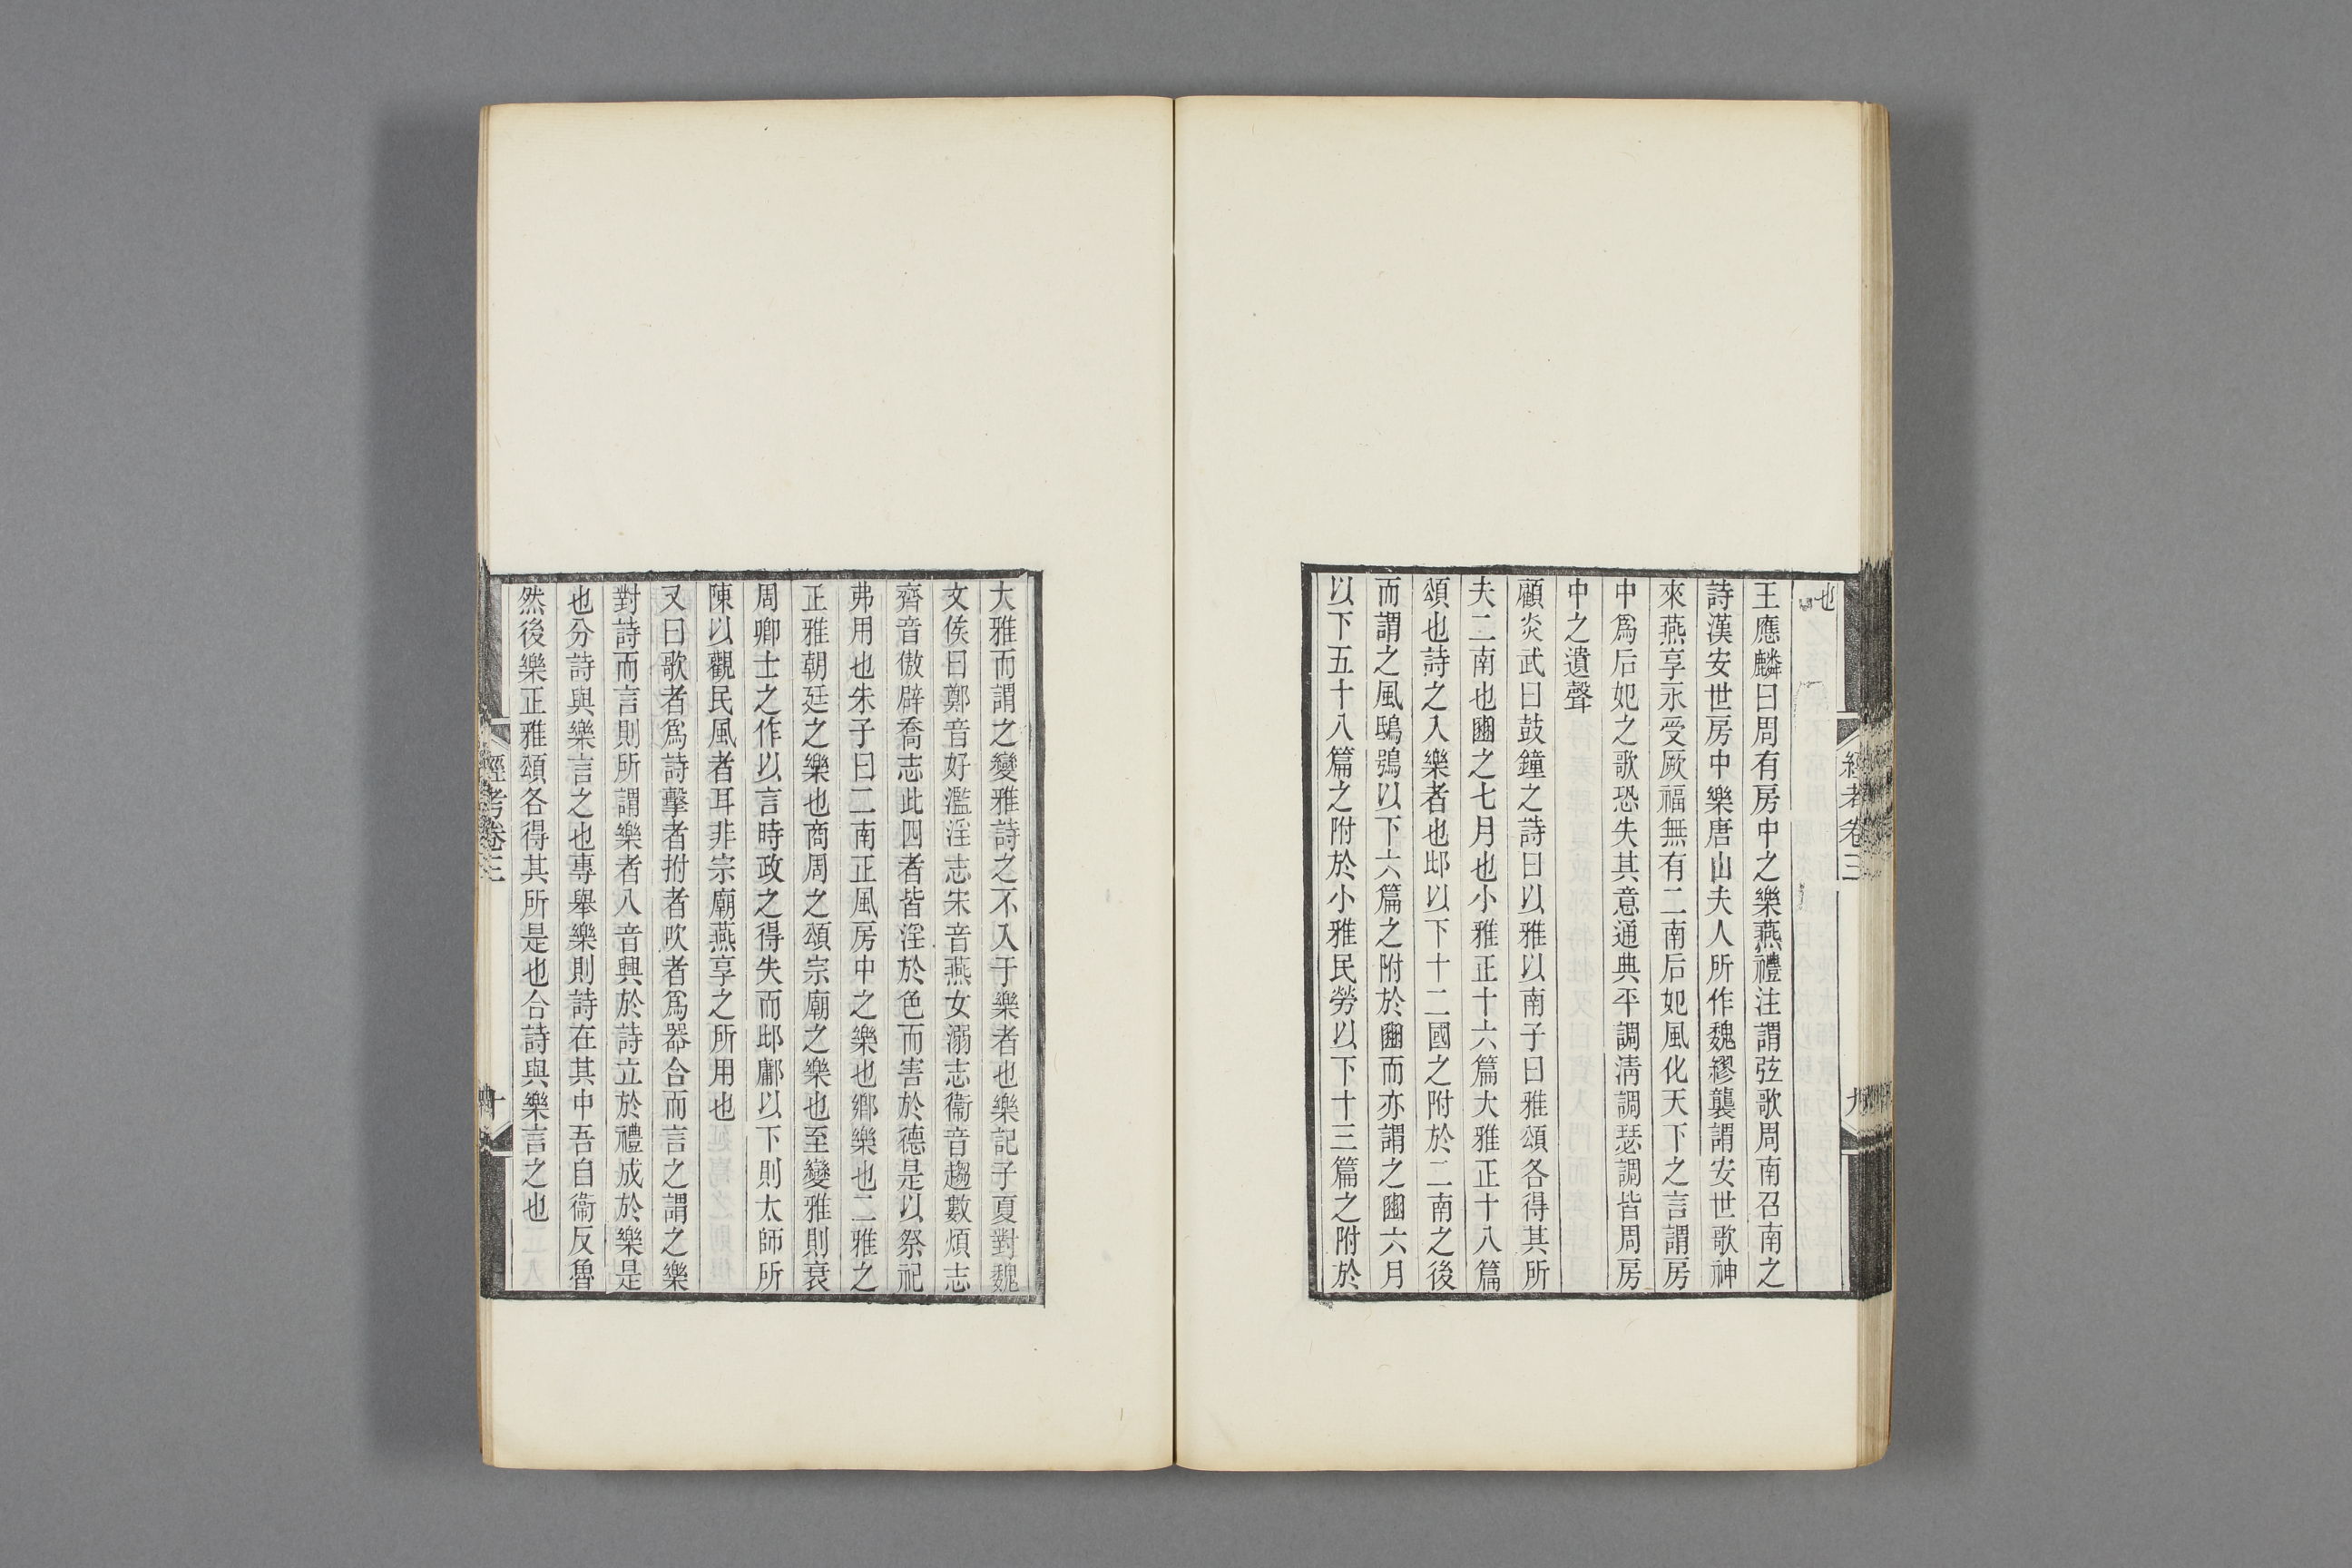 也
王應麟曰周有房中之樂燕禮注謂弦歌周南召南之
詩漢安世房中樂唐山夫人所作魏繆襲謂安世歌神
來燕享永受厥福無有二南后妃風化天下之言謂房
中爲后妃之歌恐失其意通典平調清調瑟調皆周房
中之遺聲
顧炎武曰鼓鐘之詩曰以雅以南子曰雅頌各得其所
夫二南也豳之七月也小雅正十六篇大雅正十八篇
頌也詩之入樂者也邶以下十二國之附於二南之後
而謂之風鴟鴞以下六篇之附於豳而亦謂之豳六月
以下五十八篇之附於小雅民勞以下十三篇之附於
經考卷三
九
大雅而謂之變雅詩之不入于樂者也樂記子夏對魏
文侯曰鄭音好濫淫志宋音燕女溺志衞音趨數煩志
齊音傲辟喬志此四者皆淫於色而害於德是以祭祀
弗用也朱子曰二南正風房中之樂也鄉樂也二雅之
正雅朝廷之樂也商周之頌宗廟之樂也至變雅則衰
周卿士之作以言時政之得失而邶鄘以下則太師所
陳以觀民風者耳非宗廟燕享之所用也
又曰歌者爲詩擊者拊者吹者爲器合而言之謂之樂
對詩而言則所謂樂者八音興於詩立於禮成於樂是
也分詩與樂言之也專舉樂則詩在其中吾自衞反魯
然後樂正雅頌各得其所是也合詩與樂言之也
經考卷三
十